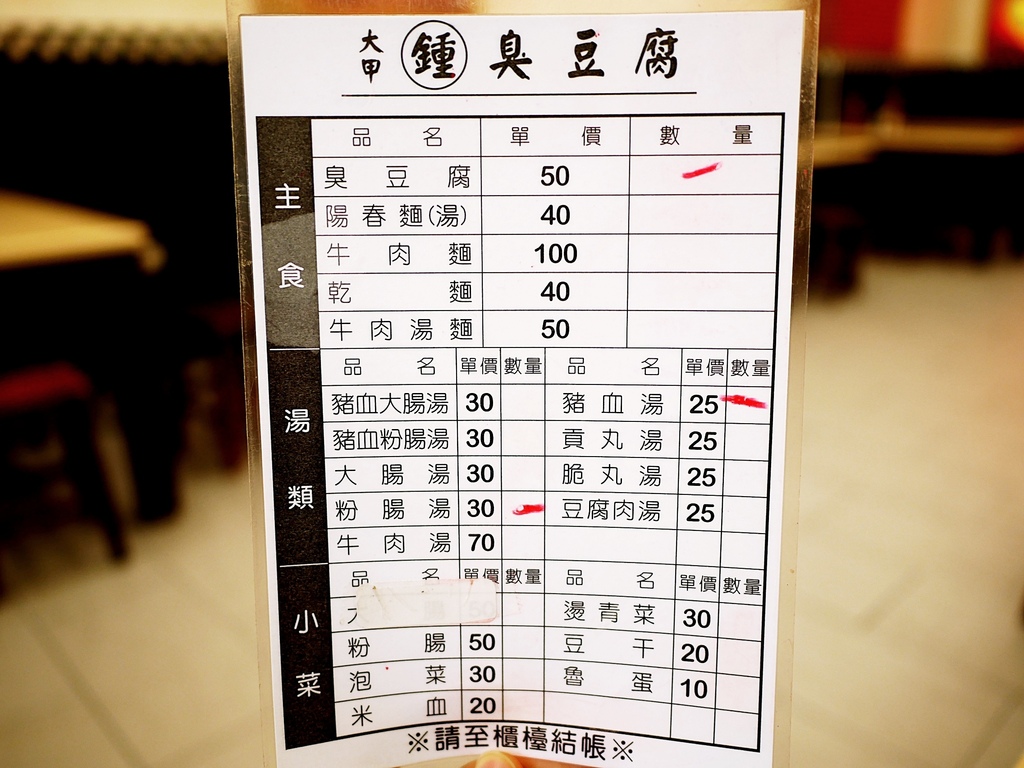 大甲 鍾 臭豆腐
主食
品名 單價 數量
臭豆腐 50
陽春麵(湯) 40
牛肉麵 100
乾麵 40
牛肉湯麵 50
湯類
品名 單價 數量 品名 單價 數量
豬血大腸湯 30 豬血湯 25
豬血粉腸湯 30 貢丸湯 25
大腸湯 30 脆丸湯 25
粉腸湯 30 豆腐肉湯 25
牛肉湯 70
小菜
品名 單價 數量 品名 單價 數量
50 燙青菜 30
粉腸 50 豆干 20
泡菜 30 魯蛋 10
米血 20
※請至櫃檯結帳※